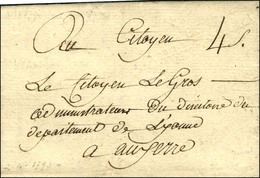 Au Citoyen 4 s.
Le Citoyen Le Gros
administrateur du directoire du
departement de Lyonne
a auxerre